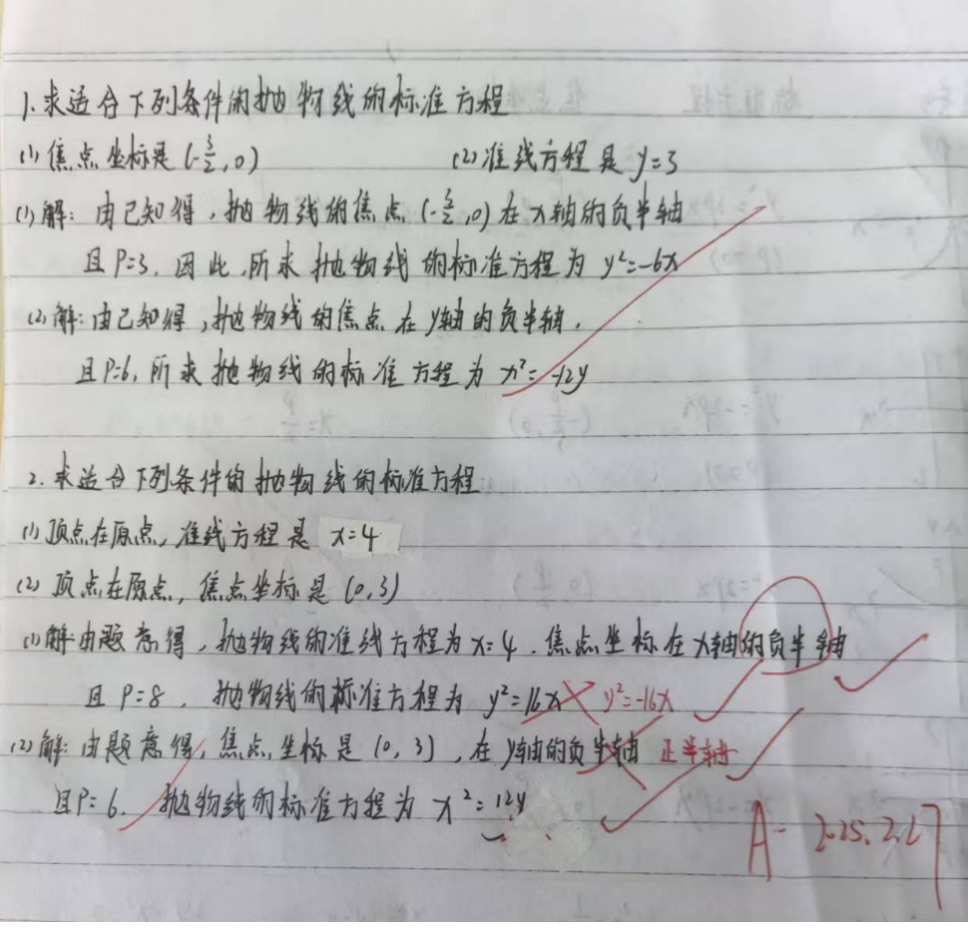 1. 求适合下列条件的抛物线的标准方程
(1) 焦点坐标是(-3/2, 0) (2) 准线方程是 y=3
(1) 解: 由已知得, 抛物线的焦点(-3/2, 0)在x轴的负半轴
且P=3. 因此,所求抛物线的标准方程为 y²=-6x
(2) 解: 由已知得,抛物线的焦点在y轴的负半轴,
且P=6, 所求抛物线的标准方程为 x²=-12y
2. 求适合下列条件的抛物线的标准方程
(1) 顶点在原点, 准线方程是 x=4
(2) 顶点在原点, 焦点坐标是 (0,3)
(1) 解:由题意得,抛物线的准线方程为x=4. 焦点坐标在x轴的负半轴
且 P=8, 抛物线的标准方程为 y²=16x y²=-16x
(2) 解: 由题意得, 焦点坐标是 (0, 3), 在y轴的负半轴 正半轴
且P=6. 抛物线的标准方程为 x²=12y
A- 2025.2.27